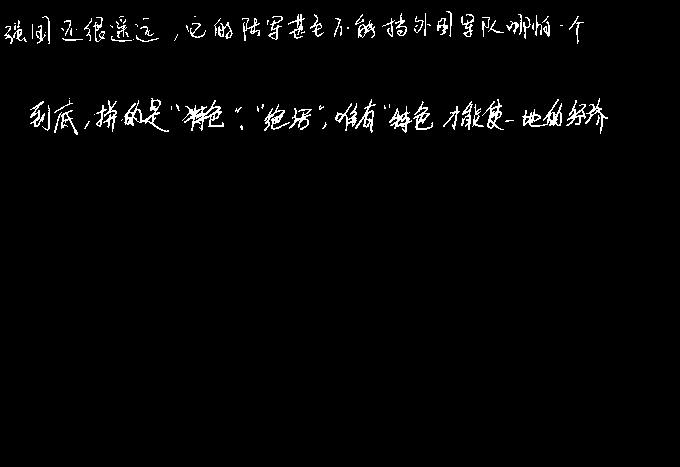 强国还很遥远，它的陆军甚至不能挡外国军队哪怕一个
到底，拼的是“特色”、“绝活”，唯有“特色才能使一地的经济